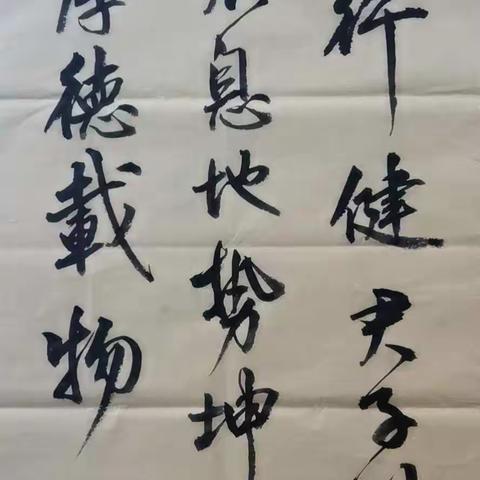 行健君子
息地势坤
厚德載物